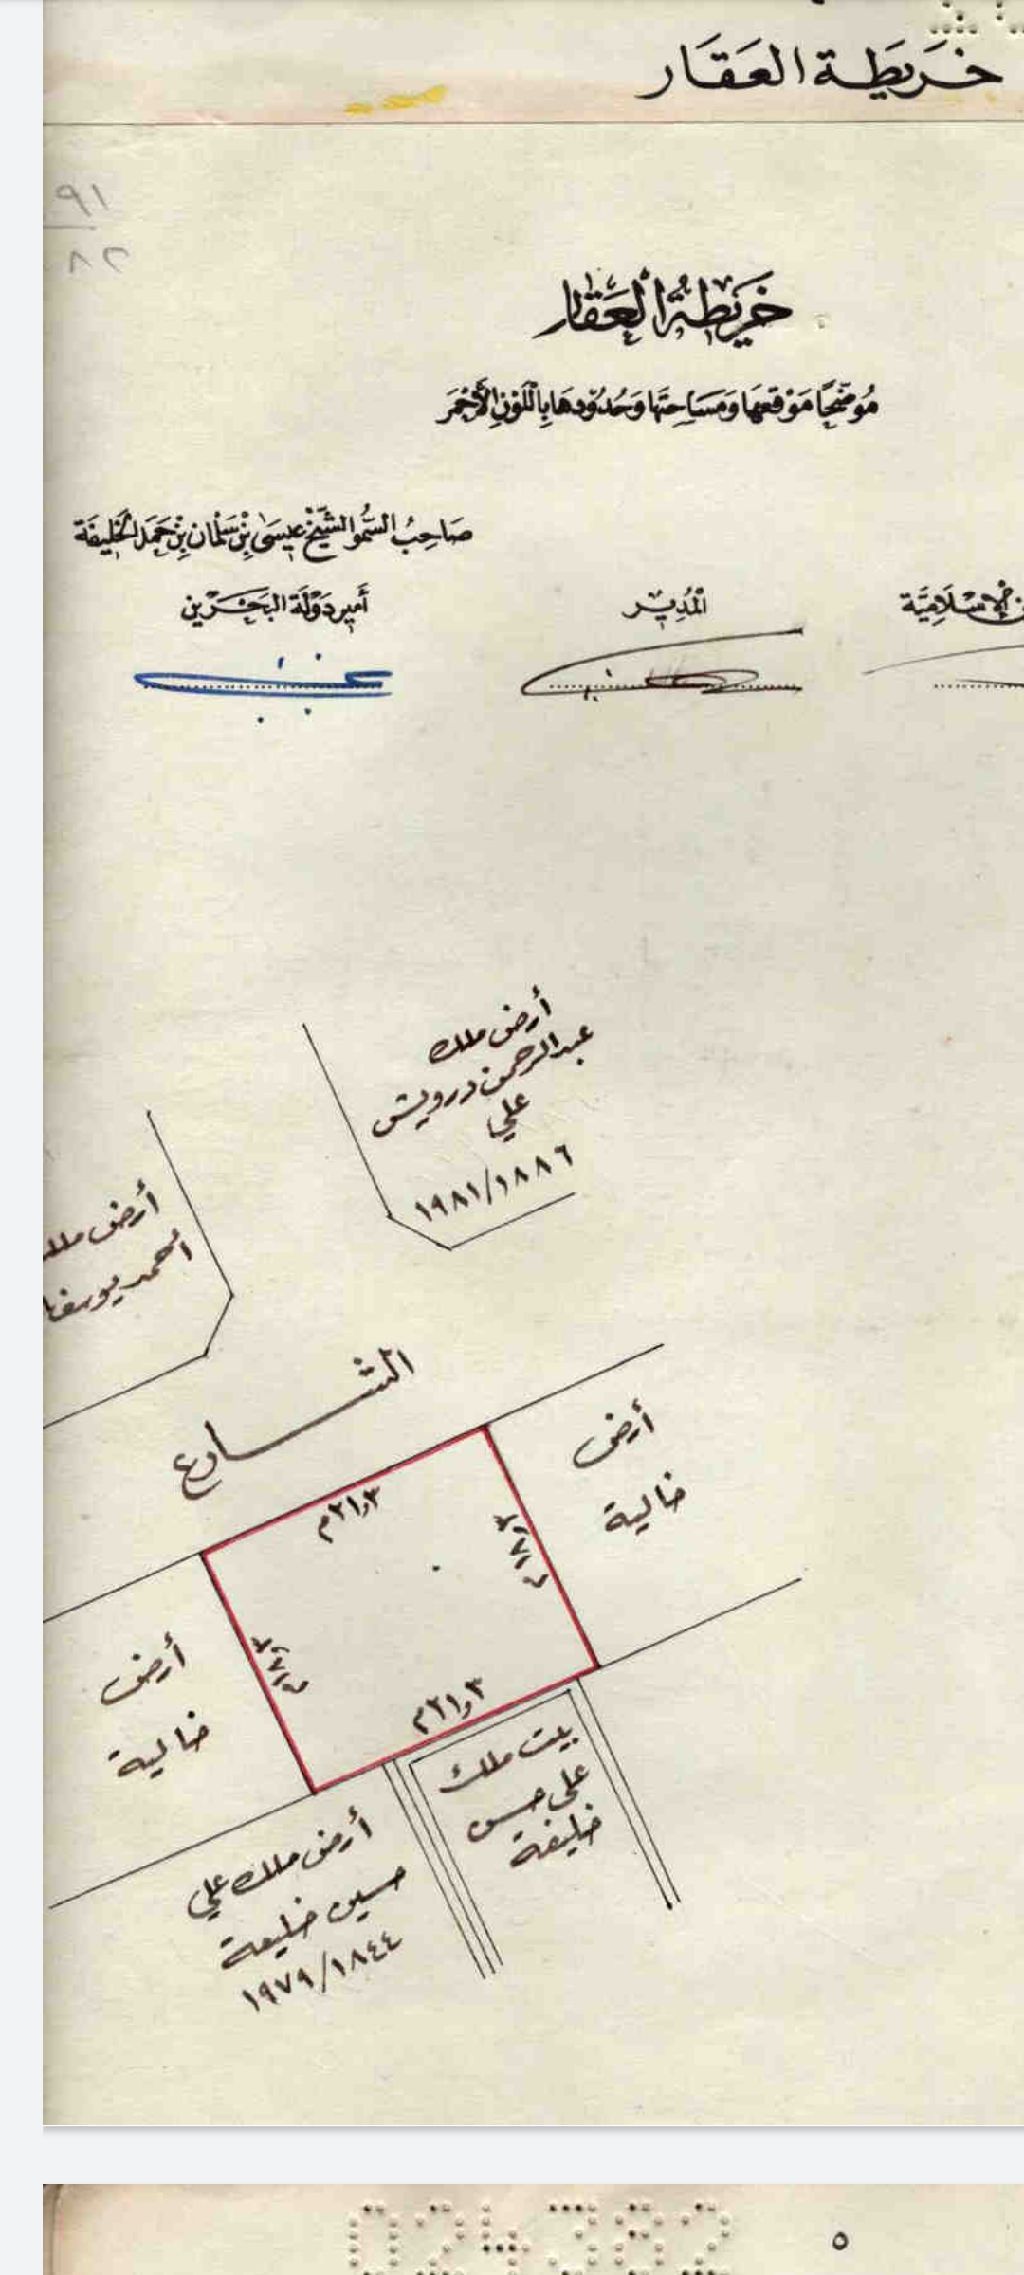 خريطة العقار
٩١
٨٢
خريطة العقار
موضحًا موقعها ومساحتها وحدودها باللون الأحمر
صاحب السمو الشيخ عيسى بن سلمان بن حمد الخليفة
أمير دولة البحرين
المدير
الإسلامية
أرض ملك
عبدالرحمن درويش
علي
١٩٨١/١٨٨٦
أرض ملك
أحمد يوسف
الشارع
أرض
خالية
٢١٫٣م
٢١٫٣م
أرض
خالية
بيت ملك
علي حسن
خليفة
أرض ملك علي
حسين خليفة
١٩٧٩/١٨٤٤
024382
٥